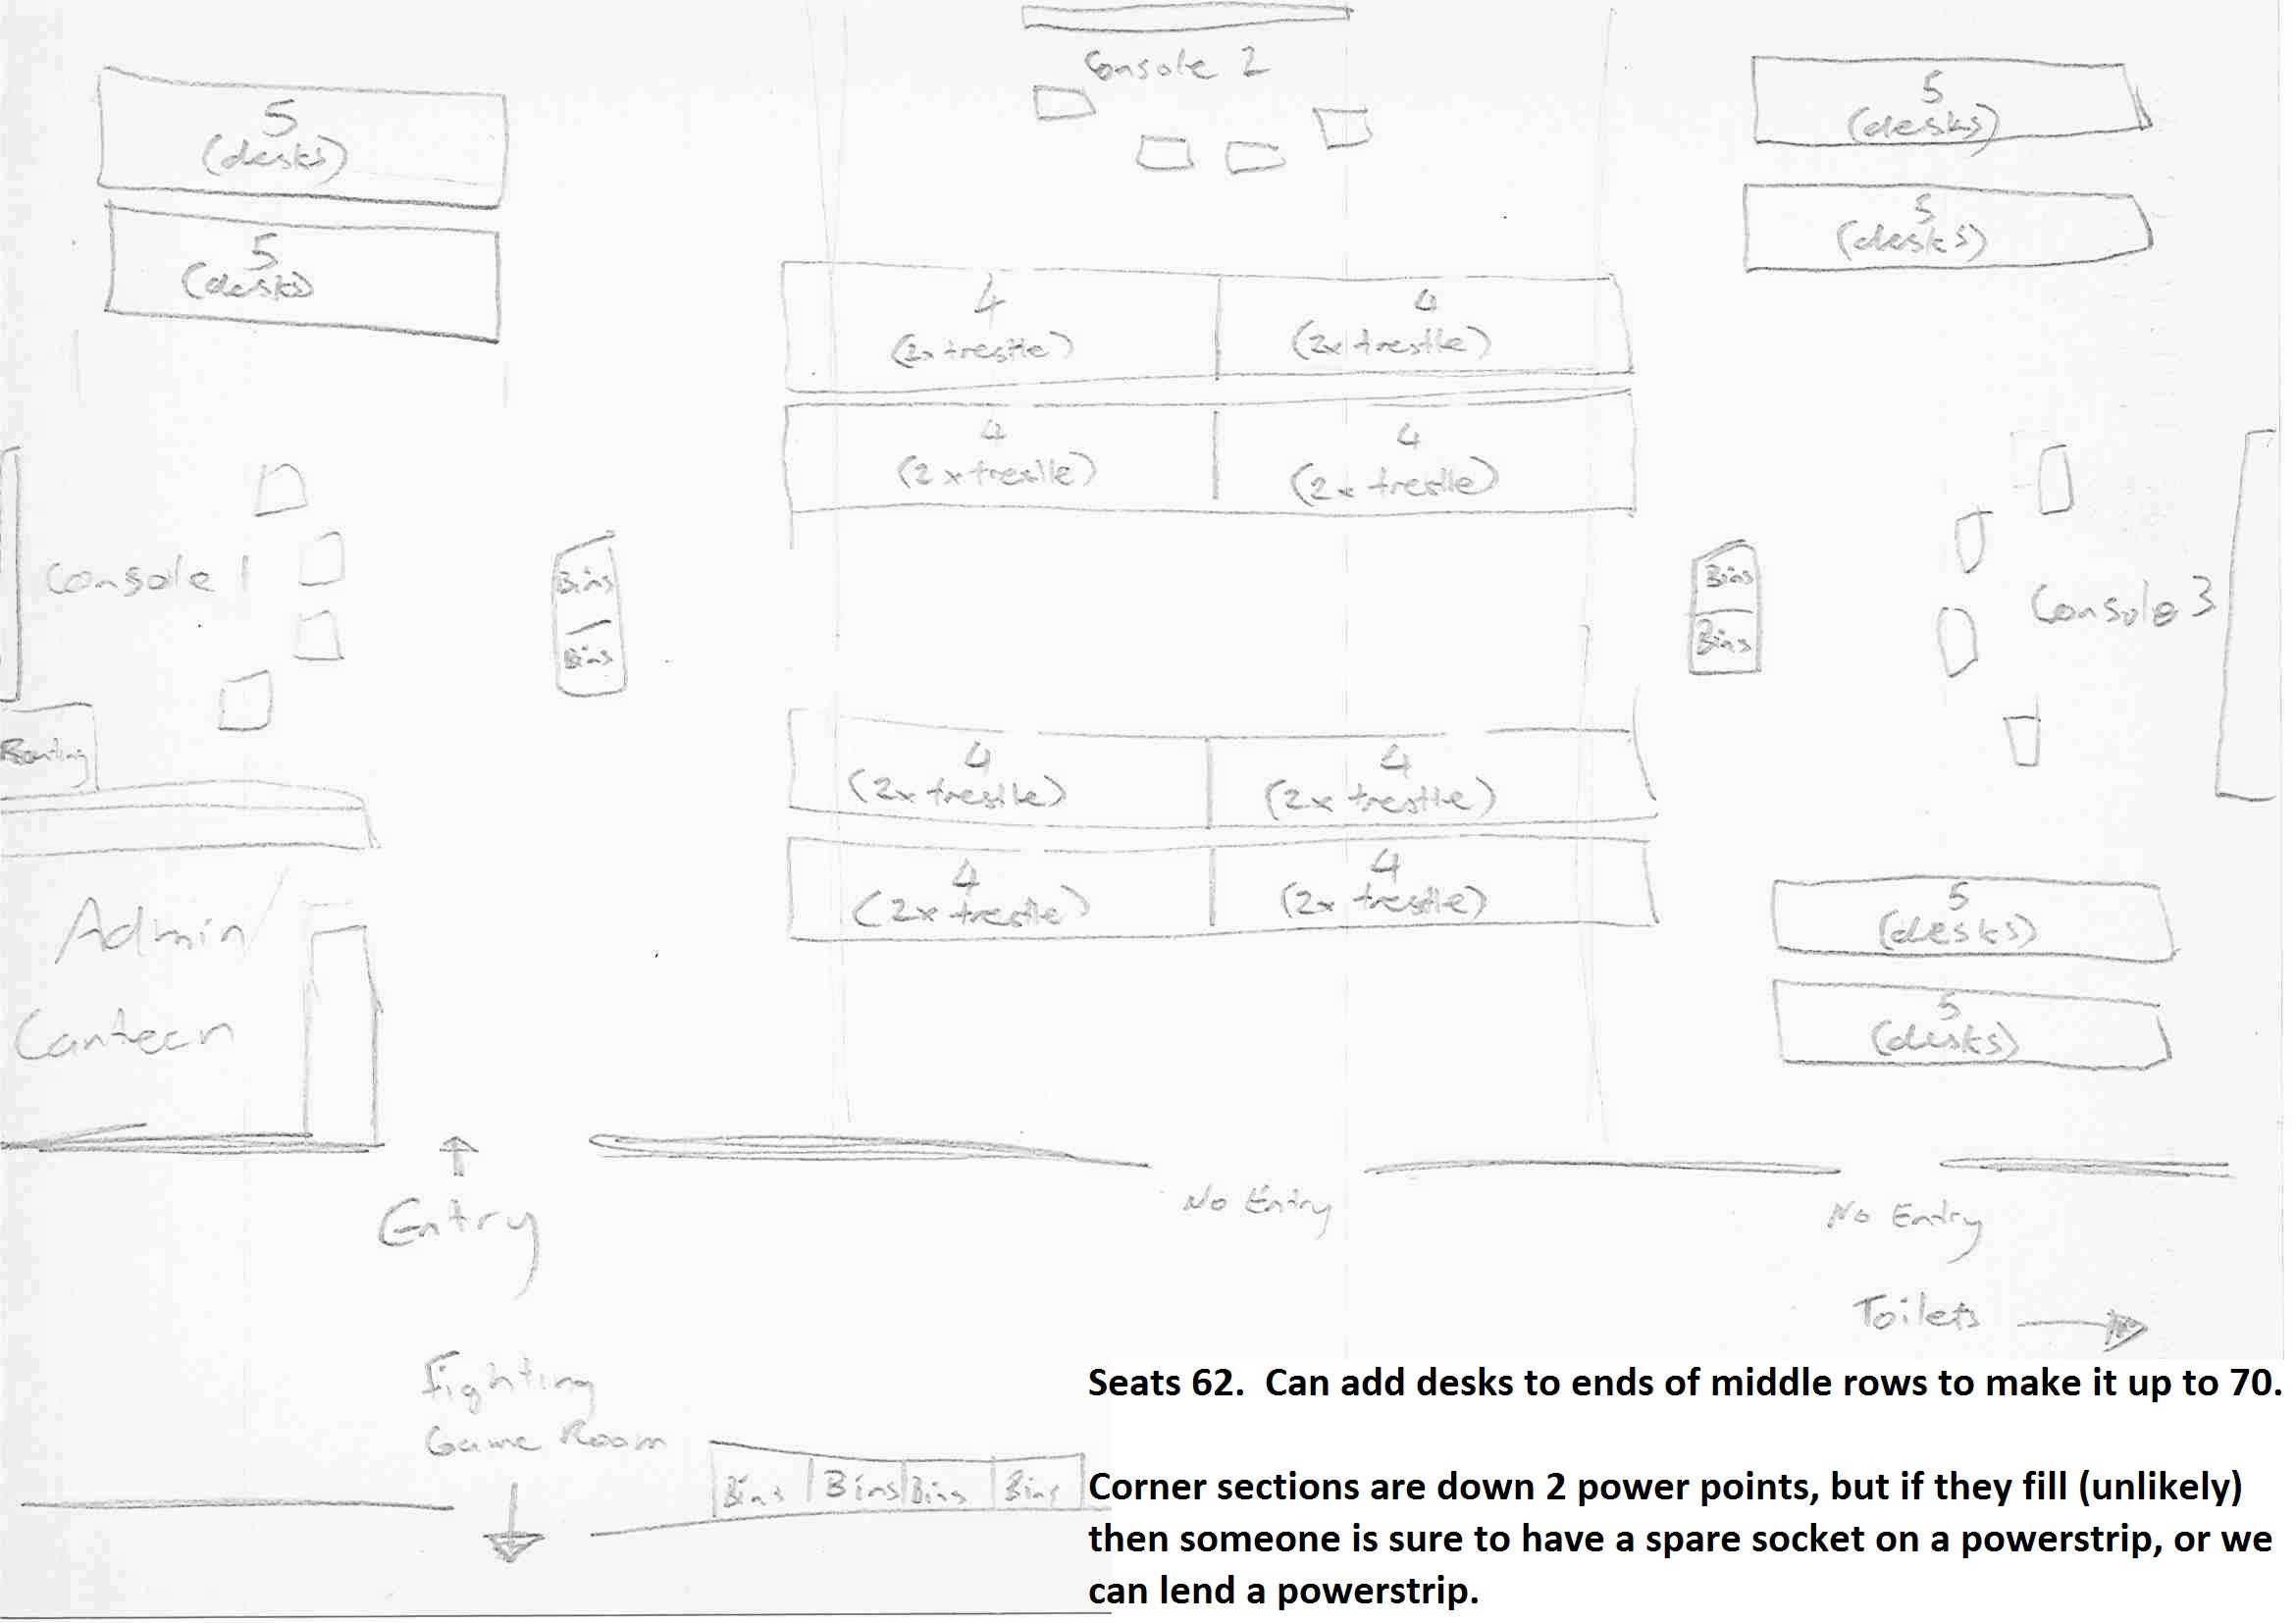 Console 2
5
(desks)
5
(desks)
5
(desks)
5
(desks)
4
(2x trestle)
4
(2x trestle)
4
(2x trestle)
4
(2x trestle)
Console 1
Bins
Bins
Bins
Bins
Console 3
Routing
4
(2x trestle)
4
(2x trestle)
4
(2x trestle)
4
(2x trestle)
Admin
Canteen
5
(desks)
5
(desks)
Entry
No Entry
No Entry
Toilets
Fighting
Game Room
Bins Bins Bins Bins
Seats 62. Can add desks to ends of middle rows to make it up to 70.
Corner sections are down 2 power points, but if they fill (unlikely)
then someone is sure to have a spare socket on a powerstrip, or we
can lend a powerstrip.